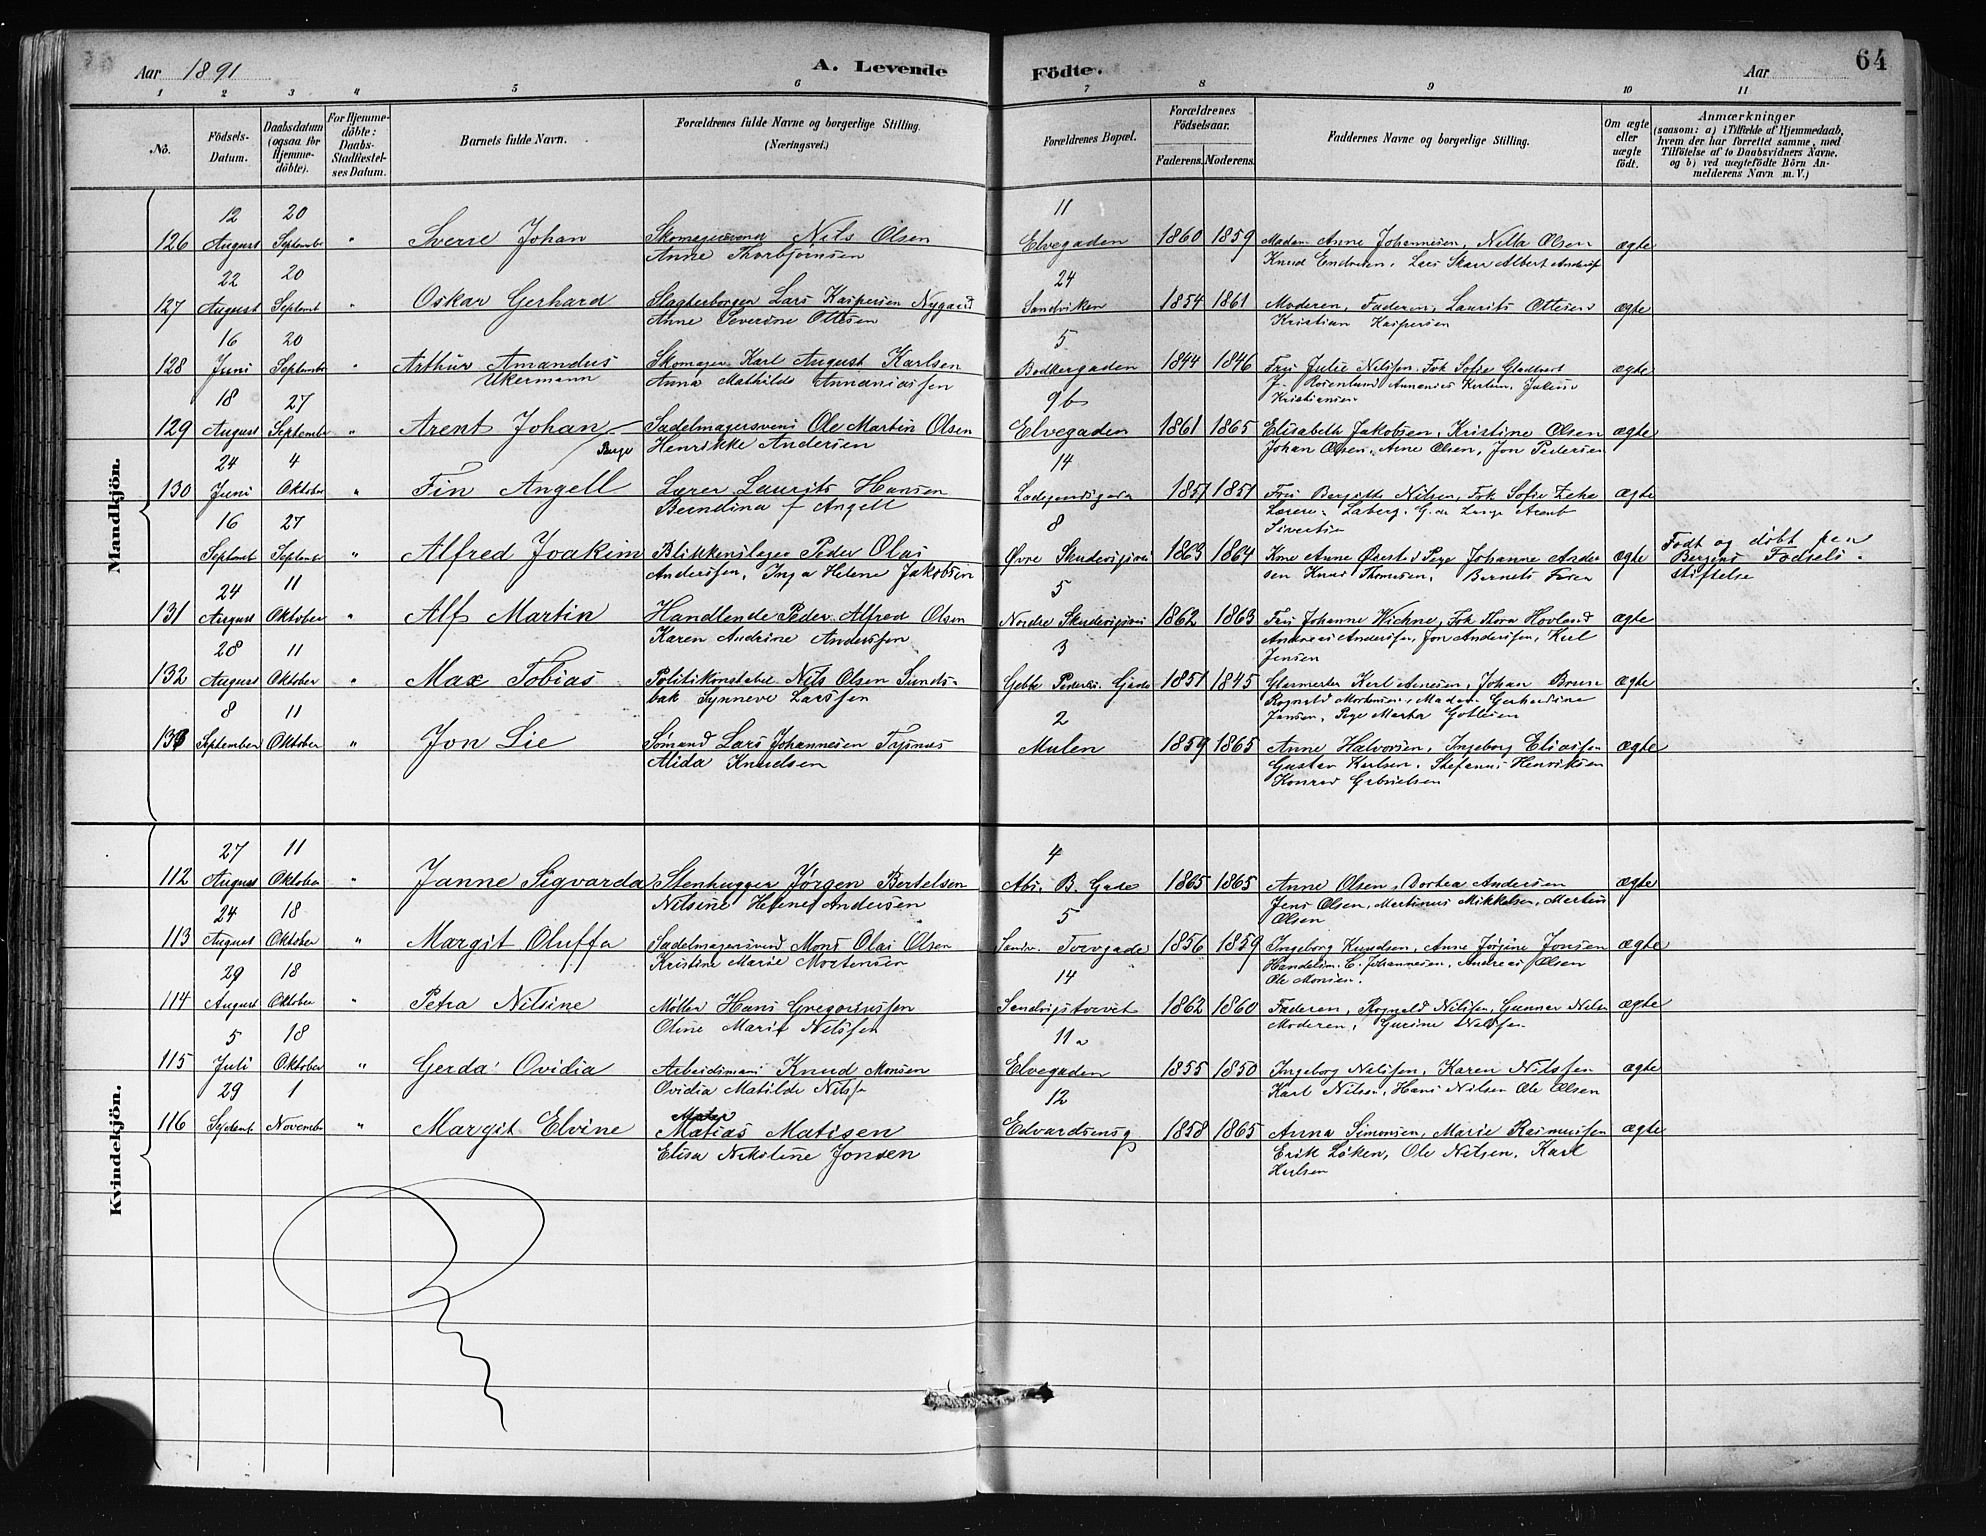 Aar 1891 A. Levende Födte. Aar 64
1 2 3 4 5 6 7 8 9 10 11
No. Födsels-Datum. Daabsdatum (ogsaa for Hjemme-döbte). For Hjemme-döbte: Daabs-Stadfæstel-ses Datum. Barnets fulde Navn. Forældrenes fulde Navne og borgerlige Stilling. (Næringsvei.) Forældrenes Bopæl. Forældrenes Födselsaar. Faderens. Moderens. Faddernes Navne og borgerlige Stilling. Om ægte eller uægte födt. Anmærkninger (saasom: a) i Tilfælde af Hjemmedaab, hvem der har forrettet samme, med Tilföielse af to Daabsvidners Navne, og b) ved uægtefödte Börn An-melderens Navn m. V.)
Mandkjön.
12 20 11
126 August September " Sverre Johan Skomagersvend Nils Olsen Elvegaden 1860 1859 Madam Anne Johannesen, Nilla Olsen ægte
Anne Thorbjørnsen Knud Endresen, Lars Skar Albert
22 20 24
127 August Septembr " Oskar Gerhard Slagterborger Lars Kaspersen Nygaard Sandviken 1854 1861 Moderen, Faderen, Laurits Ottesen ægte
Anne Severine Ottesen Kristian Kaspersen
16 20 5
128 Juni September " Arthur Amandus Skomager Karl August Karlsen Bødkergaden 1844 1846 Fru Julie Nilssen, Frk Sofie ægte
Ukermann Anna Mathilde Annaniassen Rosenlund Annanias Karlsen,
Kristiansen
18 27 9b
129 August September " Arent Johan Sadelmagersvend Ole Martin Olsen Elvegaden 1861 1865 Elisabeth Jakobsen, Kristine Olsen ægte
Henrikke Andersen Johan Olsen, Arne Olsen, Jon Pedersen
24 4 14
130 Juni Oktober " Fin Angell Lærer Laurits Hansen Ladegaardsgaden 1857 1851 Fru Bergitte Nilsen, Frk Sofie ægte
Berndina f Angell
Sivertsen
16 27 8
Septembr Septembr " Alfred Joakim Blikkenslager Peder Olai Øvre 1863 1864 Kone Anne Pige Johanne Ander ægte Født og døbt paa
Anderssen, Inga Helene Jakobsen sen Knud Thomesen, Barnets Fader Bergens Fødsels-
stiftelse
24 11 5
131 August Oktober " Alf Martin Handlende Peder Alfred Olsen Nordre 1862 1863 Fru Johanne Wichne, Frk Thora Hovland ægte
Karen Andrine Anderssen Andreas Anderssen, Jon Anderssen, Karl
Jensen
28 11 3
132 August Oktober " Max Tobias Politikonstabel Nils Olsen Sunds- Gjebke Peders. Gade 1851 1845 Glasmester Karl Arnesen, Johan Bruun ægte
bak Synneve Larssen Rognald Mortensen, Madam Gerhardine
Jansen, Pige Marta
8 11 2
133 September Oktober " Jon Lie Sømand Lars Johannesen Tysnæs Mulen 1859 1865 Anne Halvorsen, Ingeborg Eliassen ægte
Alida Knudsen Gustav Karlsen, Stefanus Henriksen
Konrad Gabrielsen
Kvindekjön.
27 11 4
112 August Oktober " Janne Sigvarda Stenhugger Jørgen Bertelsen Abs. B. Gade 1865 1865 Anne Olsen, Dortea Andersen ægte
Nilsine Helene Andersen Jens Olsen, Martinus Mikkelsen, Martin
Olsen
24 18 5
113 August Oktober " Margit Oluffa Sadelmagersvend Mons Olai Olsen Sandv. Torvgade 1856 1859 Ingeborg Knudsen, Anne Jørgine Jonsen ægte
Kristine Marie Mortensen Handelsm. C. Johannesen, Andreas Olsen
Ole Monsen.
29 18 14
114 August Oktober " Petra Nilsine Møller Hans Gregoriussen Sandvigstorvet 1862 1860 Faderen, Rognald Nilssen, Gunnar Nilsen ægte
Oline Marie Nilssen Moderen, Gurine Nilssen
5 18 11a
115 Juli Oktober " Gerda Ovidia Arbeidsmand Knud Monsen Elvegaden 1855 1850 Ingeborg Nilssen, Karen Nilssen ægte
Ovidia Matilde Nilss Karl Nilsen, Hans Nilsen Ole Olsen
29 1 12
116 Septemb. November " Margit Elvine Matias Matisen Edvardsensg 1858 1865 Anna Simonsen, Marie Rasmussen ægte
Elisa Nikoline Jonsen Erik Løken, Ole Nilsen, Karl